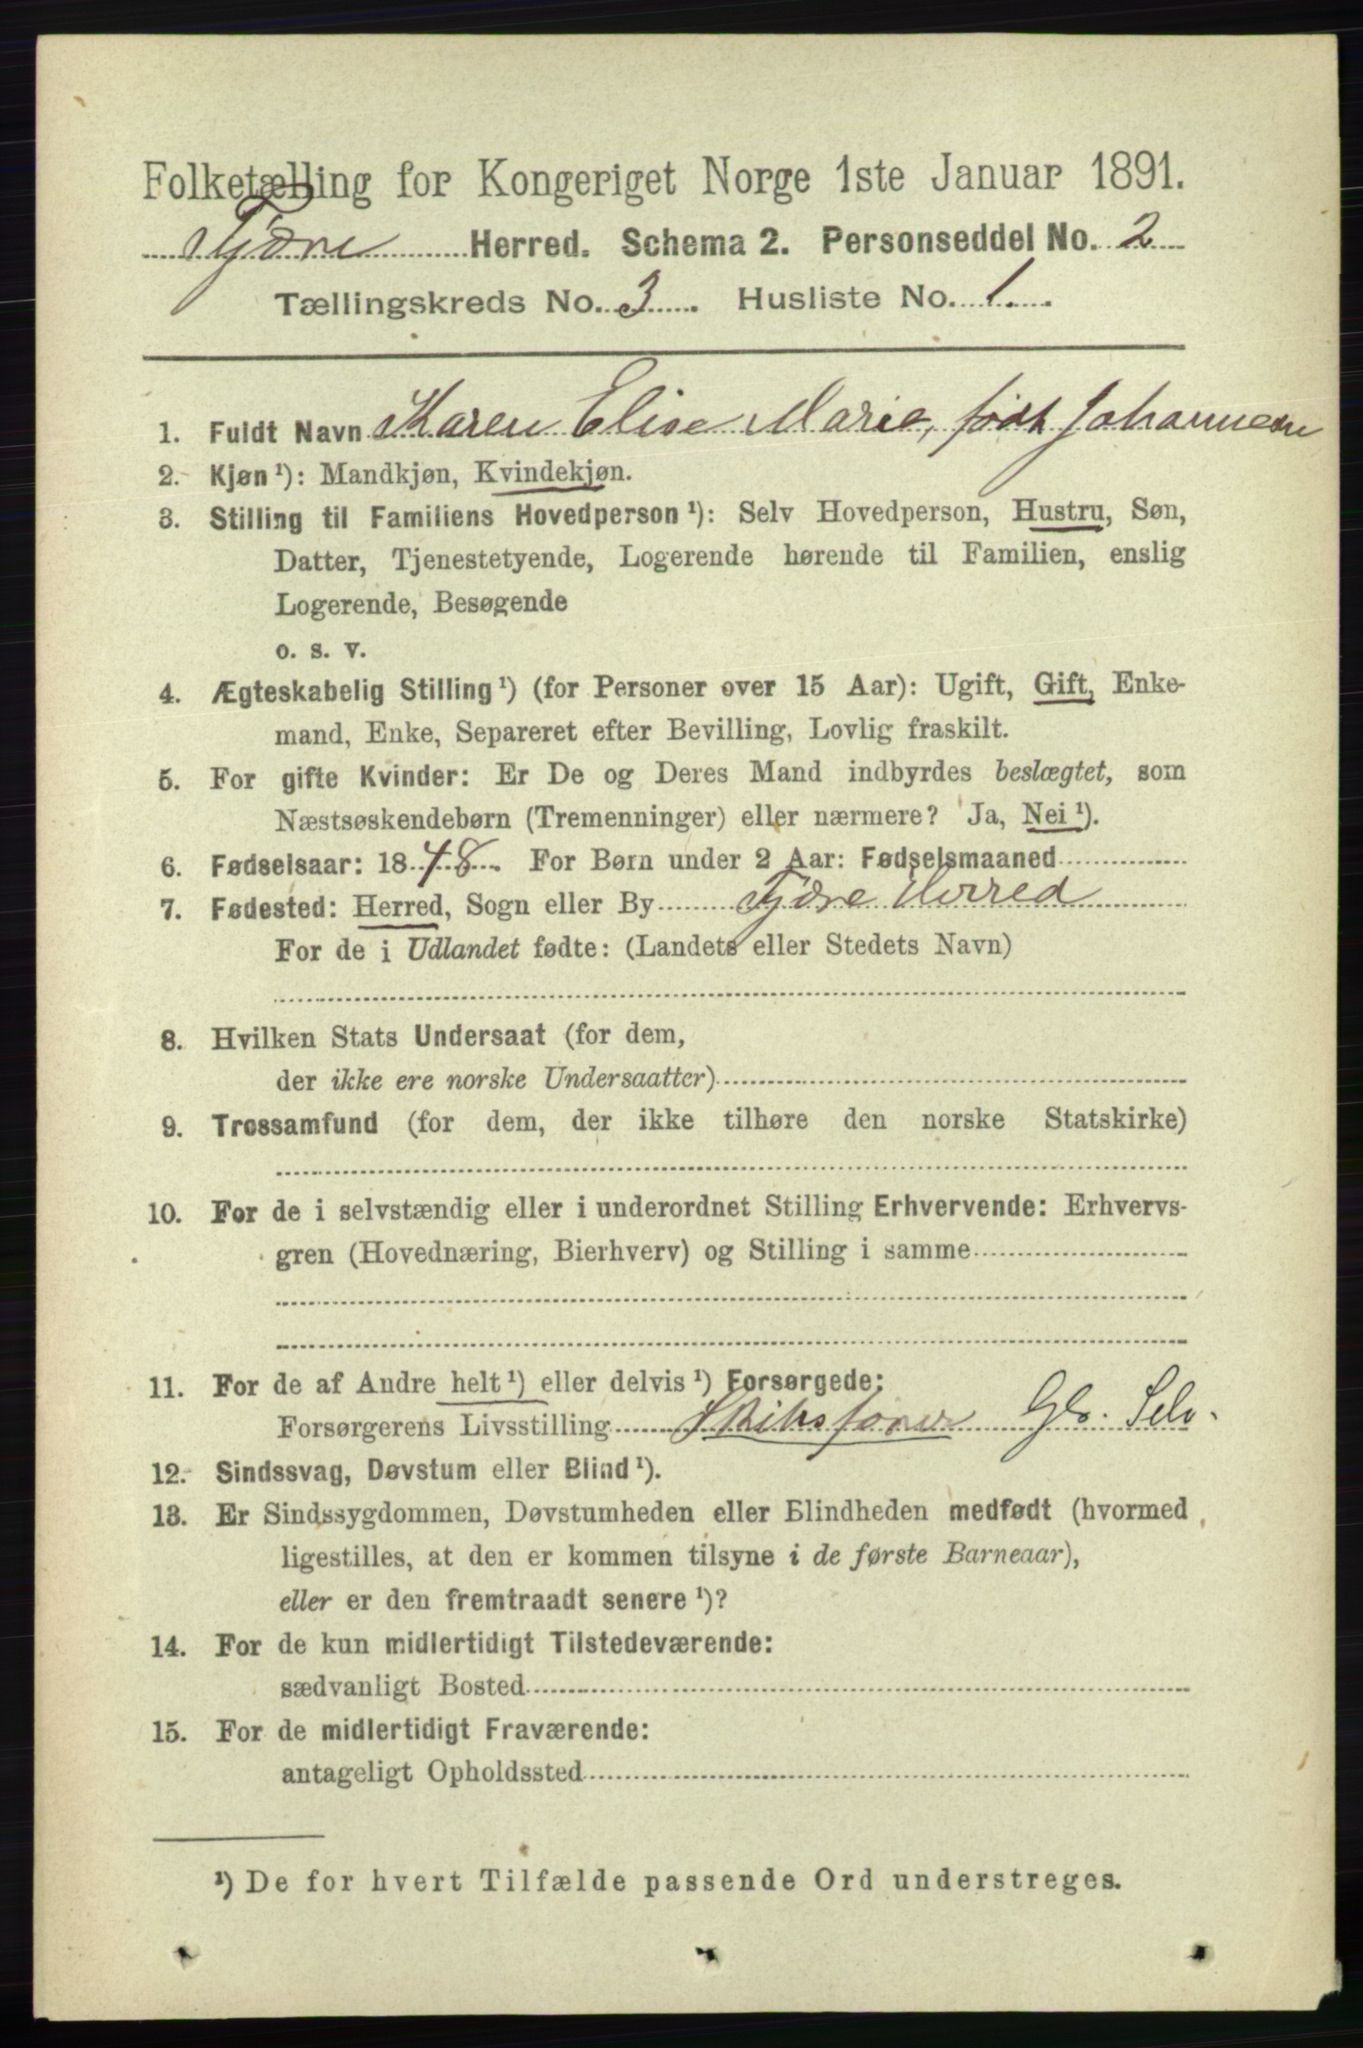 Folketælling for Kongeriget Norge 1ste Januar 1891.
Tjømø Herred. Schema 2. Personseddel No. 2
Tællingskreds No. 3. Husliste No. 1.
1. Fuldt Navn Karen Elise Marie, født Johannesen
2. Kjøn ¹): Mandkjøn, Kvindekjøn.
3. Stilling til Familiens Hovedperson ¹): Selv Hovedperson, Hustru, Søn,
Datter, Tjenestetyende, Logerende hørende til Familien, enslig
Logerende, Besøgende
o. s. v.
4. Ægteskabelig Stilling ¹) (for Personer over 15 Aar): Ugift, Gift, Enke-
mand, Enke, Separeret efter Bevilling, Lovlig fraskilt.
5. For gifte Kvinder: Er De og Deres Mand indbyrdes beslægtet, som
Næstsøskendebørn (Tremenninger) eller nærmere? Ja, Nei ¹).
6. Fødselsaar: 1848. For Børn under 2 Aar: Fødselsmaaned
7. Fødested: Herred, Sogn eller By Tjømø Herred
For de i Udlandet fødte: (Landets eller Stedets Navn)
8. Hvilken Stats Undersaat (for dem,
der ikke ere norske Undersaatter)
9. Trossamfund (for dem, der ikke tilhøre den norske Statskirke)
10. For de i selvstændig eller i underordnet Stilling Erhvervende: Erhvervs-
gren (Hovednæring, Bierhverv) og Stilling i samme
11. For de af Andre helt ¹) eller delvis ¹) Forsørgede:
Forsørgerens Livsstilling Skibsfører Selv.
12. Sindssvag, Døvstum eller Blind ¹).
13. Er Sindssygdommen, Døvstumheden eller Blindheden medfødt (hvormed
ligestilles, at den er kommen tilsyne i de første Barneaar),
eller er den fremtraadt senere ¹)?
14. For de kun midlertidigt Tilstedeværende:
sædvanligt Bosted
15. For de midlertidigt Fraværende:
antageligt Opholdssted
¹) De for hvert Tilfælde passende Ord understreges.